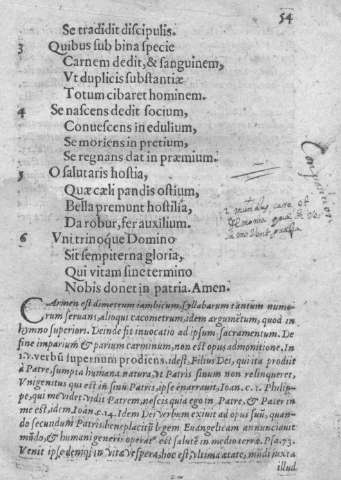 54
Se tradidit discipulis.
3 Quibus sub bina specie
Carnem dedit, & sanguinem,
Vt duplicis substantiæ
Totum cibaret hominem.
4 Se nascens dedit socium,
Conuescens in edulium,
Se moriens in pretium,
Se regnans dat in præmium.
5 O salutaris hostia,
Quæ cæli pandis ostium,
Bella premunt hostilia,
Da robur, fer auxilium.
6 Vni trinoque Domino
Sit sempiterna gloria,
Qui vitam sine termino
Nobis donet in patria. Amen.
CArmen est dimetrum iambicum, syllabarum tantùm nume
rum seruans, alioqui cacometrum, idem argumētum, quod in
hymno superiori. Deinde fit inuocatio ad ipsum sacramentum. De
fine imparium & parium carminum, non est opus admonitione. In
verbū supernum prodiens. idest, Filius Dei, qui ita prodiit
à Patre, sumpta humana natura, vt Patris sinum non relinqueret,
Vnigenitus qui est in sinu Patris, ipse enarrauit, Ioan. c. 1. Philip-
pe, qui me videt videt Patrem, nescis quia ego in Patre, & Pater in
me est, idem Ioan. c. 14. Idem Dei verbum exiuit ad opus suū, quan-
do secundum Patris beneplacitū legem Euangelicam annunciauit
mūdo, & humani generis est salutē in medio terræ. Psa. 73.
Venit ipse deniq; in vitæ vespera, hoc est, vltima ætate, mūdi iuxta
illud